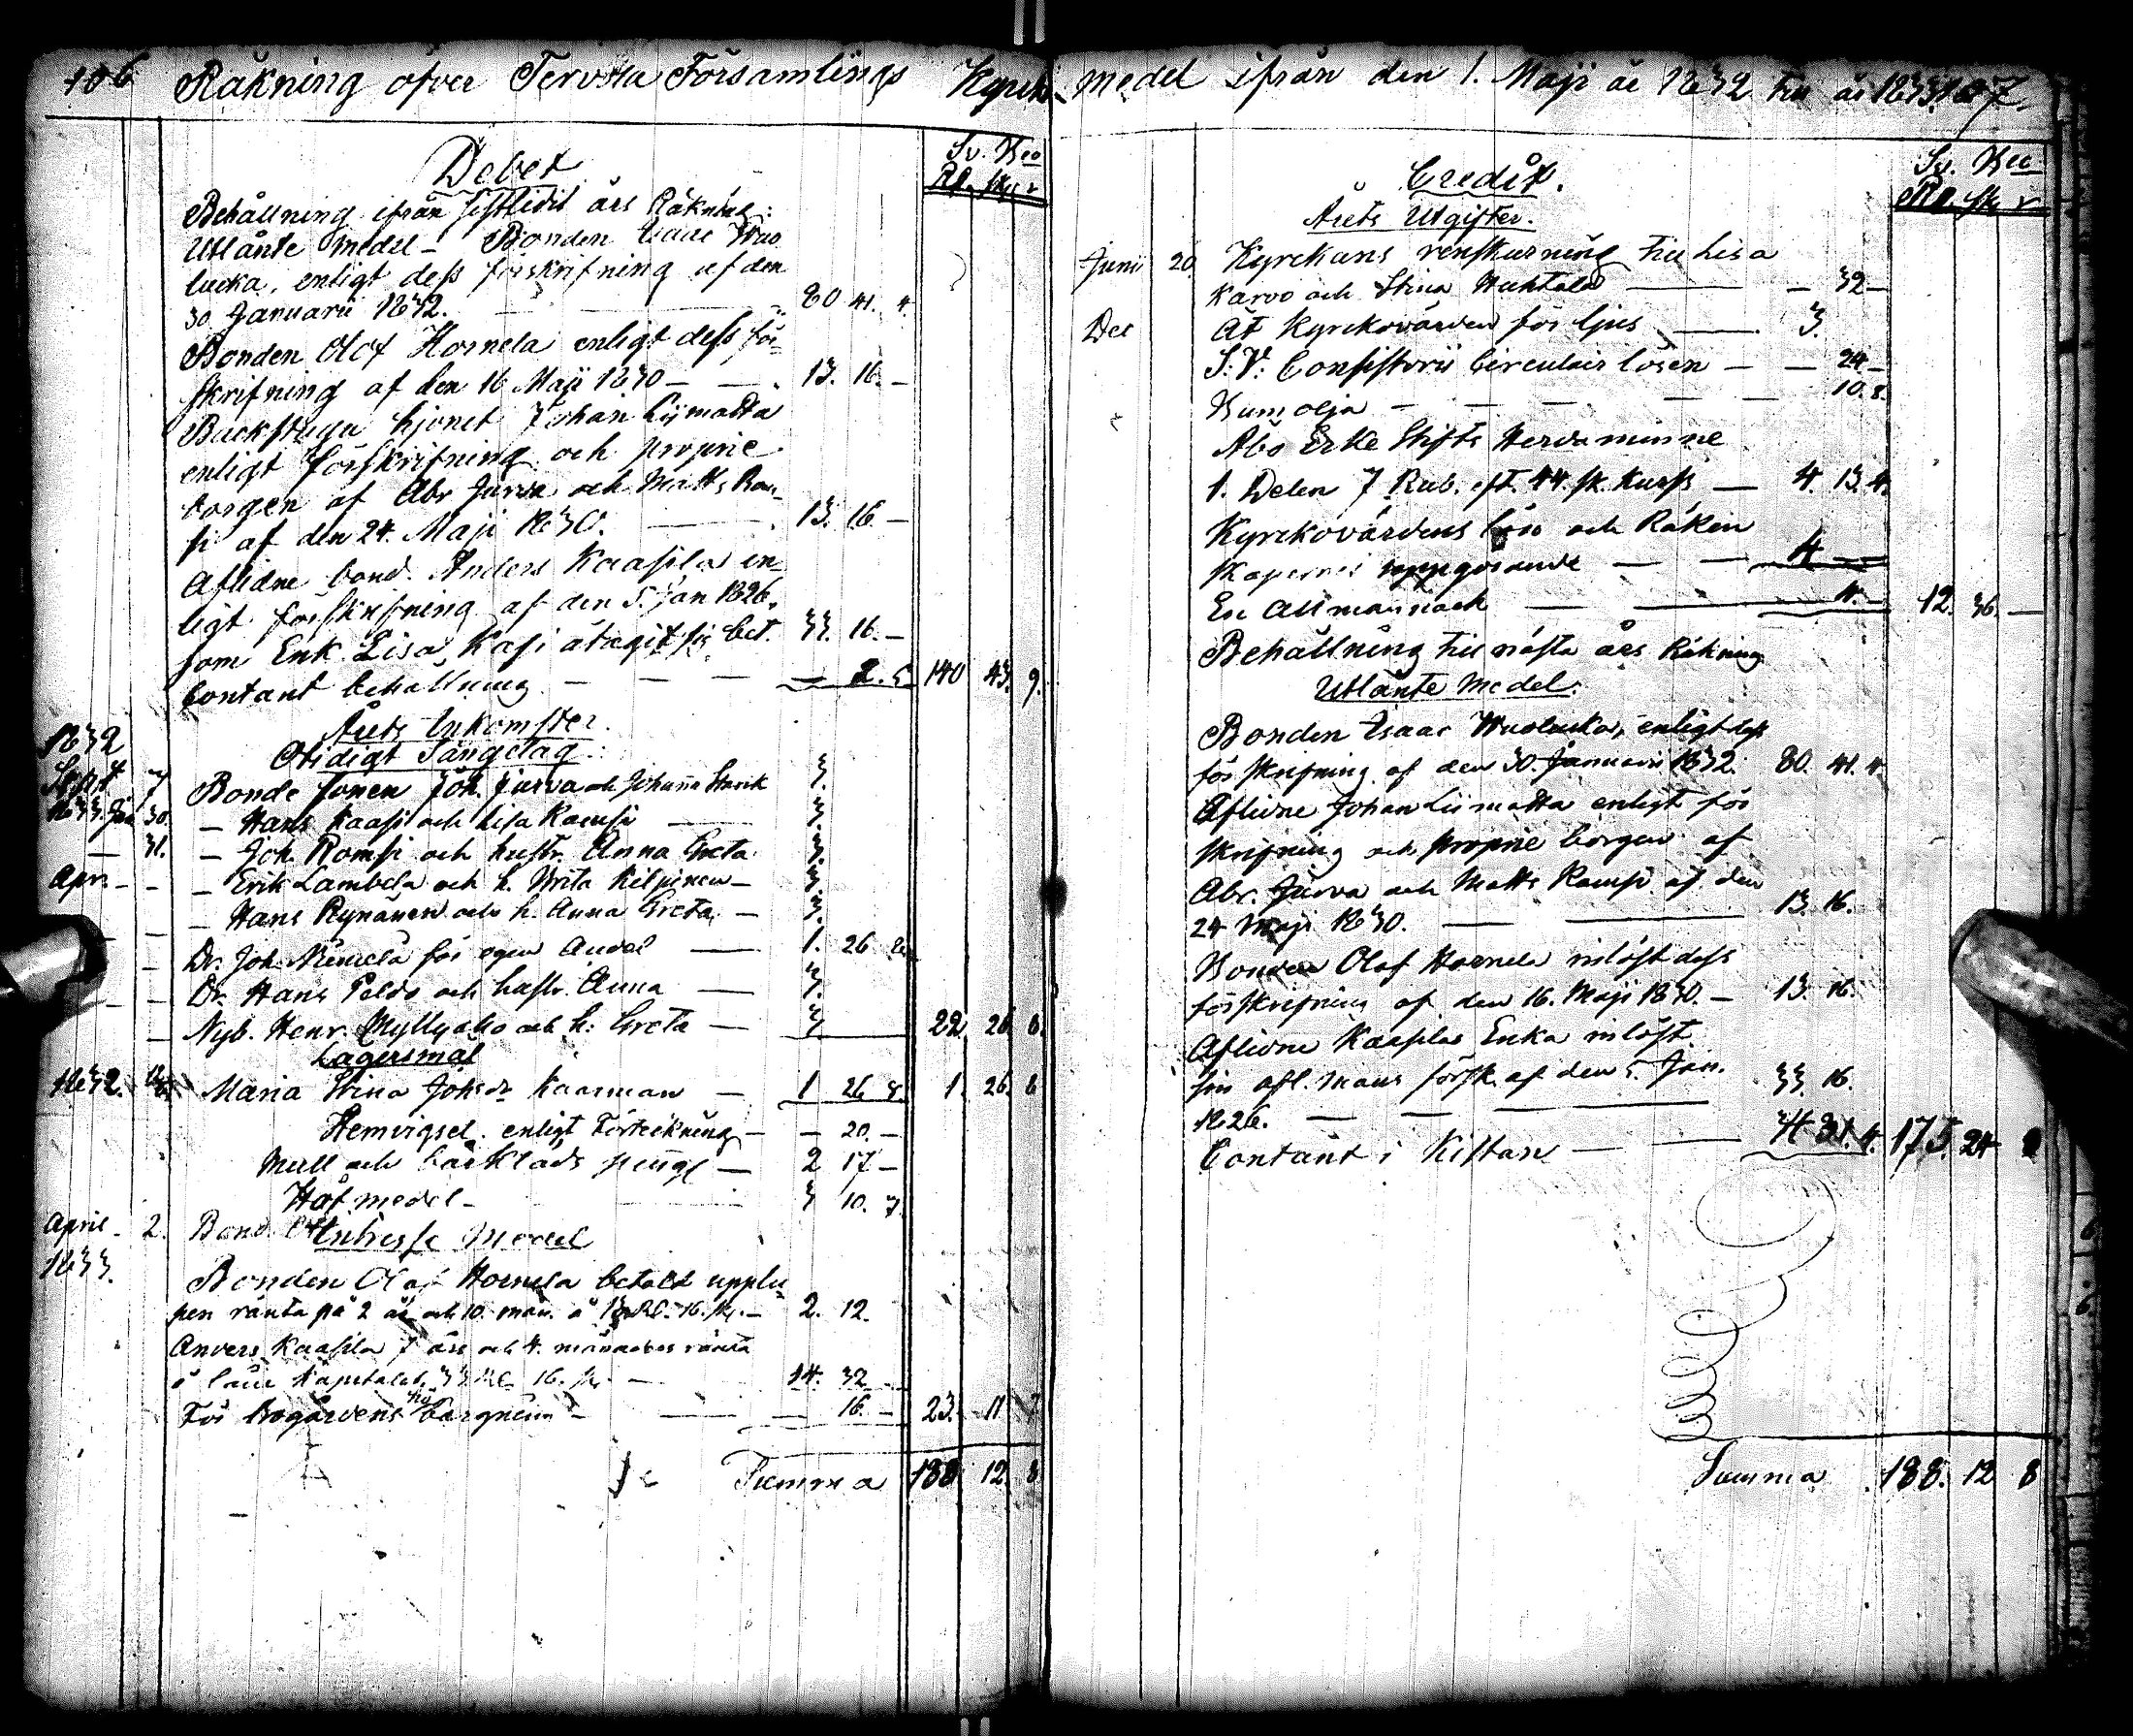 106 Räkning öfver Tervola Församlings Kyrko
Debet
Sv. Bco
Rd. sk. r
Behållning ifrån sistledit års Räkning:
Utlånte medel – Bonden Isaac Wuo
lucka, enligt dess förskrifning af den
30 Januarii 1832. 80. 41. 4.
Bonden Olof Hornela enligt dess för-
skrifning af den 16 Maji 1830 – 13. 16. –
Backstugu hjonet Johan Liimatta
enligt förskrifning och proprie
borgen af Abr. Jurva och Matts Rom-
si af den 24. Maji 1830. 13. 16 –
Aflidne bond. Anders Kaasila en-
ligt förskrifning af den 5. Jan 1826.
som Enk. Lisa Kasi åtagit sig bet. 33. 16. –
Contant behållning – – – 2. 5. 140 43. 9.
Årets Inkomster.
1832
Otidigt Sängelag:
Sept 7 Bonde sonen Joh. Jurva och Johanna Stark 3.
1833. Jan 30. – Hans Kaasi och Lisa Ramsi 3.
– 31. – Joh. Romsi och hustr. Anna Greta 3.
Apr. – – – Erik Lambela och h. Brita Kilpinen – 3.
– – – Hans Rynänen och h. Anna Greta – 3.
– Dr. Joh. Niemelä för egen Andel 1. 26 8.
– – Dr. Hans Peldo och hustr. Anna 3.
– Nyb. Henr. Myllyaho och h. Greta – 3 22. 26 8.
Lägersmål
1832. Maria Stina Johsdr Kaarman – 1 26 8. 1. 26. 8
Hemvigsel. enligt Förteckning – – 20. –
Mull och bårklads peng – 2 17 –
Håf medel – 3 10. 7.
April – 2. Bond. Intresse Medel
1833.
Bonden Olof Hornela betalt upplu-
pen ränta på 2 år och 10. mån. å 13 Rd. 16. sk. – 2. 12.
Anders Kaasila 7 års och 4. månaders ränta
å lånt Kapitalet 33 Rd. 16. sk. – 14. 32
För Bogårdens hö bärgning – – 16. – 23. 11 7.
Summa 188 12. 8
Medel ifrån den 1. Maji år 1832 till år 1833. 107.
Credit.
Sv. Bco
Rd. sk r
Årets Utgifter.
Junii 20 Kyrckans renskurning till Lisa
Karvo och Stina Huhtala – 32 –
Dec Åt Kyrckovärden för ljus 3.
S. V. Consistorii Circulair lösen – – 24 –
Bumolja – – – – – 10. 8.
Åbo Erke Stifts Herdaminne
1. Delen 7 Rub. eft. 44. sk. Kurss – 4. 13. 4.
Kyrckovärdens lön och Räken
skapernes uppgörande – – 4 –
En Allmannach 4. – 12. 36. –
Behållning till nästa års Räkning
Utlånte Medel.
Bonden Isaac Wuolucka, enligt dess
förskrifning af den 30. Januarii 1832. 80. 41. 4.
Aflidne Johan Liimatta enligt för
skrifning och proprie borgen af
Abr. Jurva och Matts Ramsi af den
24 Maji 1830. 13. 16.
Bonden Olof Hornela inlöst dess
förskrifning af den 16. Maji 1830. – 13. 16.
Aflidne Kaasilas Enka inlöst
sin afl. mans försk. af den 5. Jan.
1826. – – 33. 16.
Contant i Kistan 34 31. 4. 175. 24 8
Summa 188. 12 8